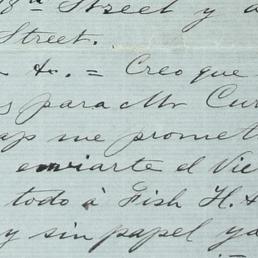 Street y a
Street.
= Creo que
para Mr Cur
me promet
enviarte el Vie
todo à Fish H. &
y sin papel ya